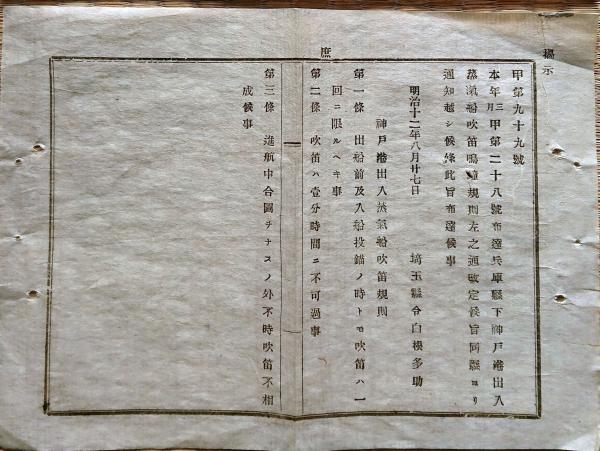 揭示
庶
甲第九十九號
本年三月甲第二十八號布達兵庫縣下神戸港出入
蒸氣船吹笛鳴鐘規則左之通改定候旨同縣ヨリ
通知越シ候條此旨布達候事
明治十二年八月廿七日　埼玉縣令白根多助
神戸港出入蒸氣船吹笛規則
第一條　出船前及入船投錨ノ時トモ吹笛ハ一
回ニ限ルヘキ事
第二條　吹笛ハ壹分時間ニ不可過事
第三條　進航中合圖ヲナスノ外不時吹笛不相
成候事